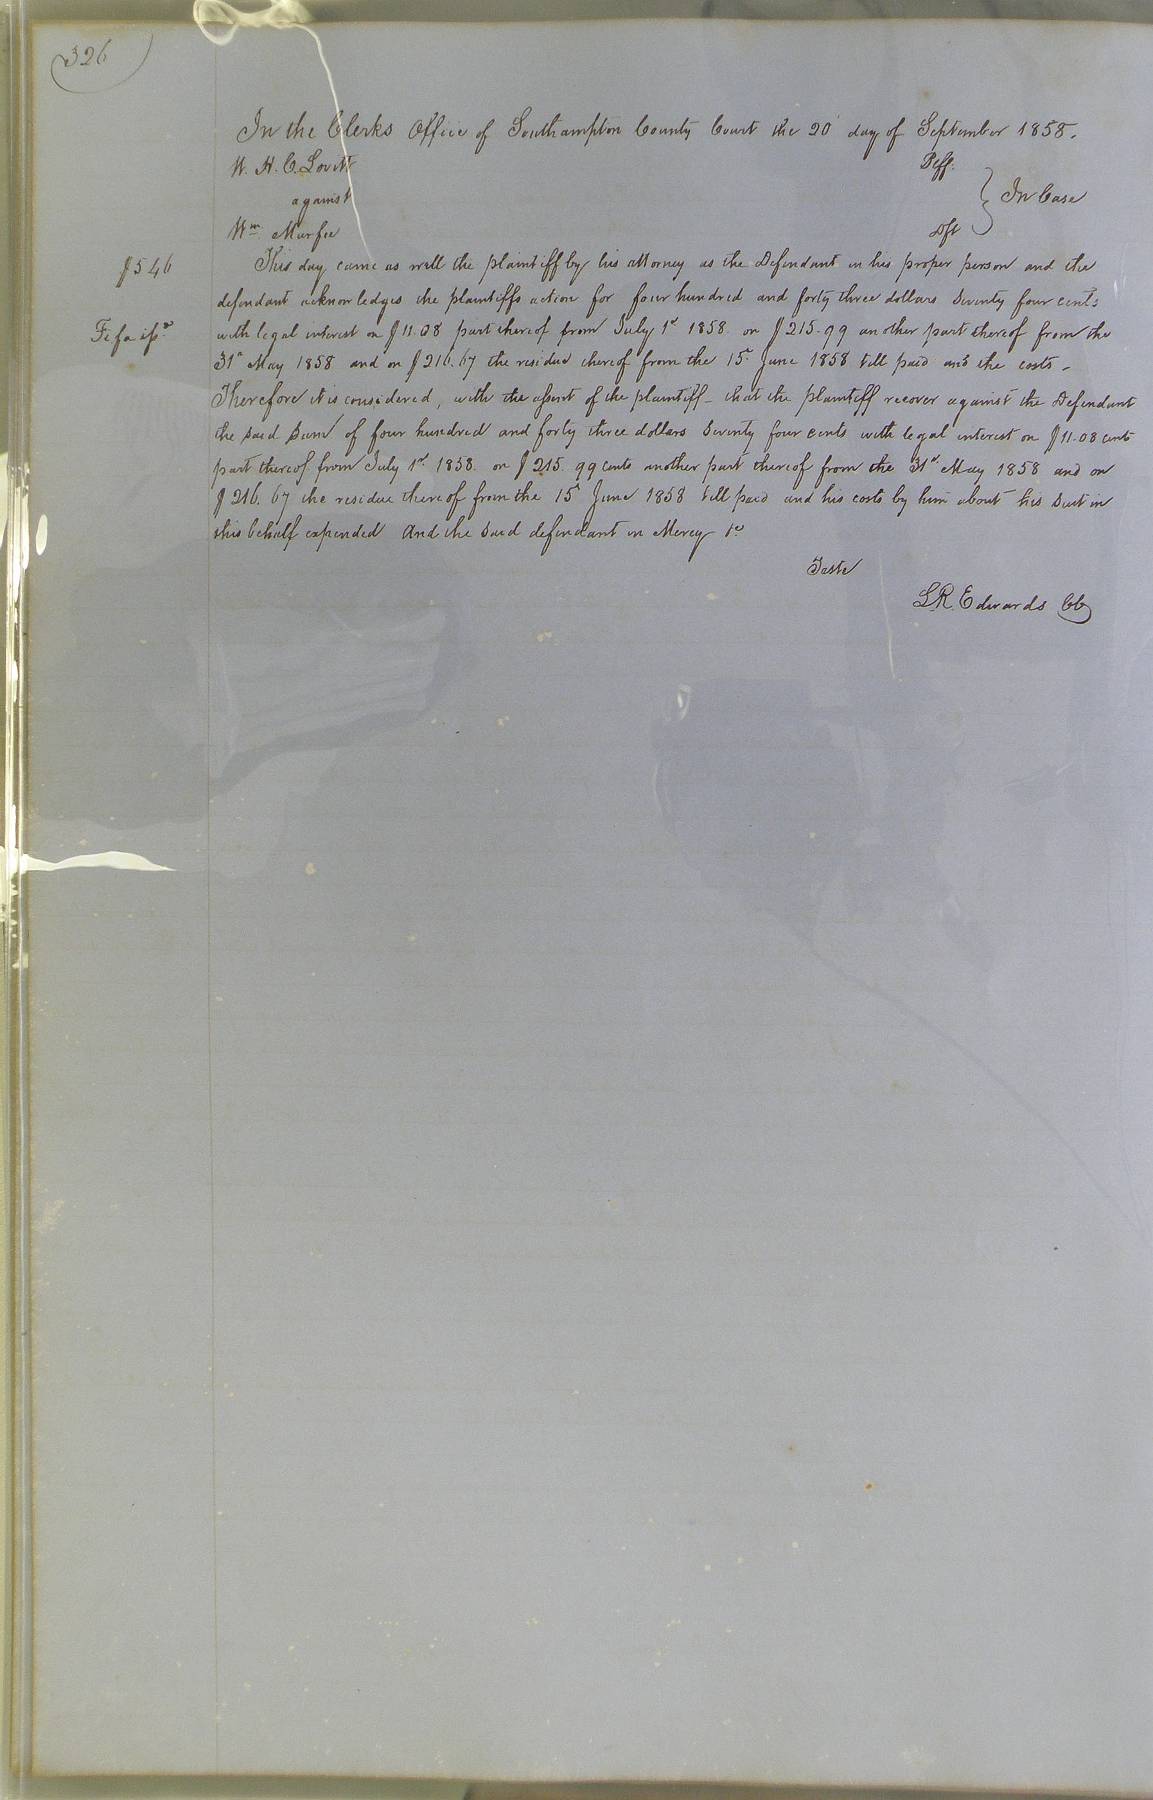 326
In the Clerks Office of Southampton County Court the 20 day of September 1858.
W. H. C. Lovitt Plff.
against } In Case
Wm. Murfee Dft
$546
This day came as well the plaintiff by his attorney as the Defendant in his proper person and the
defendant acknowledges the plaintiffs action for four hundred and forty three dollars Seventy four cents
Fi fa isd
with legal interest on $11.08 part thereof from July 1st 1858. on $215.99 another part thereof from the
31st May 1858 and on $216.67 the residue thereof from the 15 June 1858 till paid and the costs.
Therefore it is considered, with the assent of the plaintiff that the plaintiff recover against the Defendant
the said Sum of four hundred and forty three dollars Seventy four cents with legal interest on $11.08 cents
part thereof from July 1st 1858. on $215.99 cents another part thereof from the 31st May 1858 and on
$216.67 the residue thereof from the 15 June 1858 till paid and his costs by him about his Suit in
this behalf expended And the said defendant in Mercy &c
Teste
L.R. Edwards CC